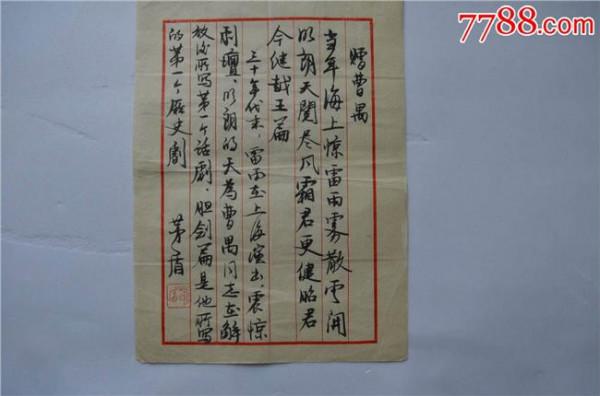 赠曹禺
当年海上惊雷雨雾散云开
明朗天阅尽风霜君更健昭君
今继越王篇
三十年代末，雷雨在上海演出，震惊
剧坛，明朗的天为曹禺同志在解
放后所写第一个话剧，胆剑篇是他所写
的第一个历史剧
茅盾
7788.com
中国收藏热线